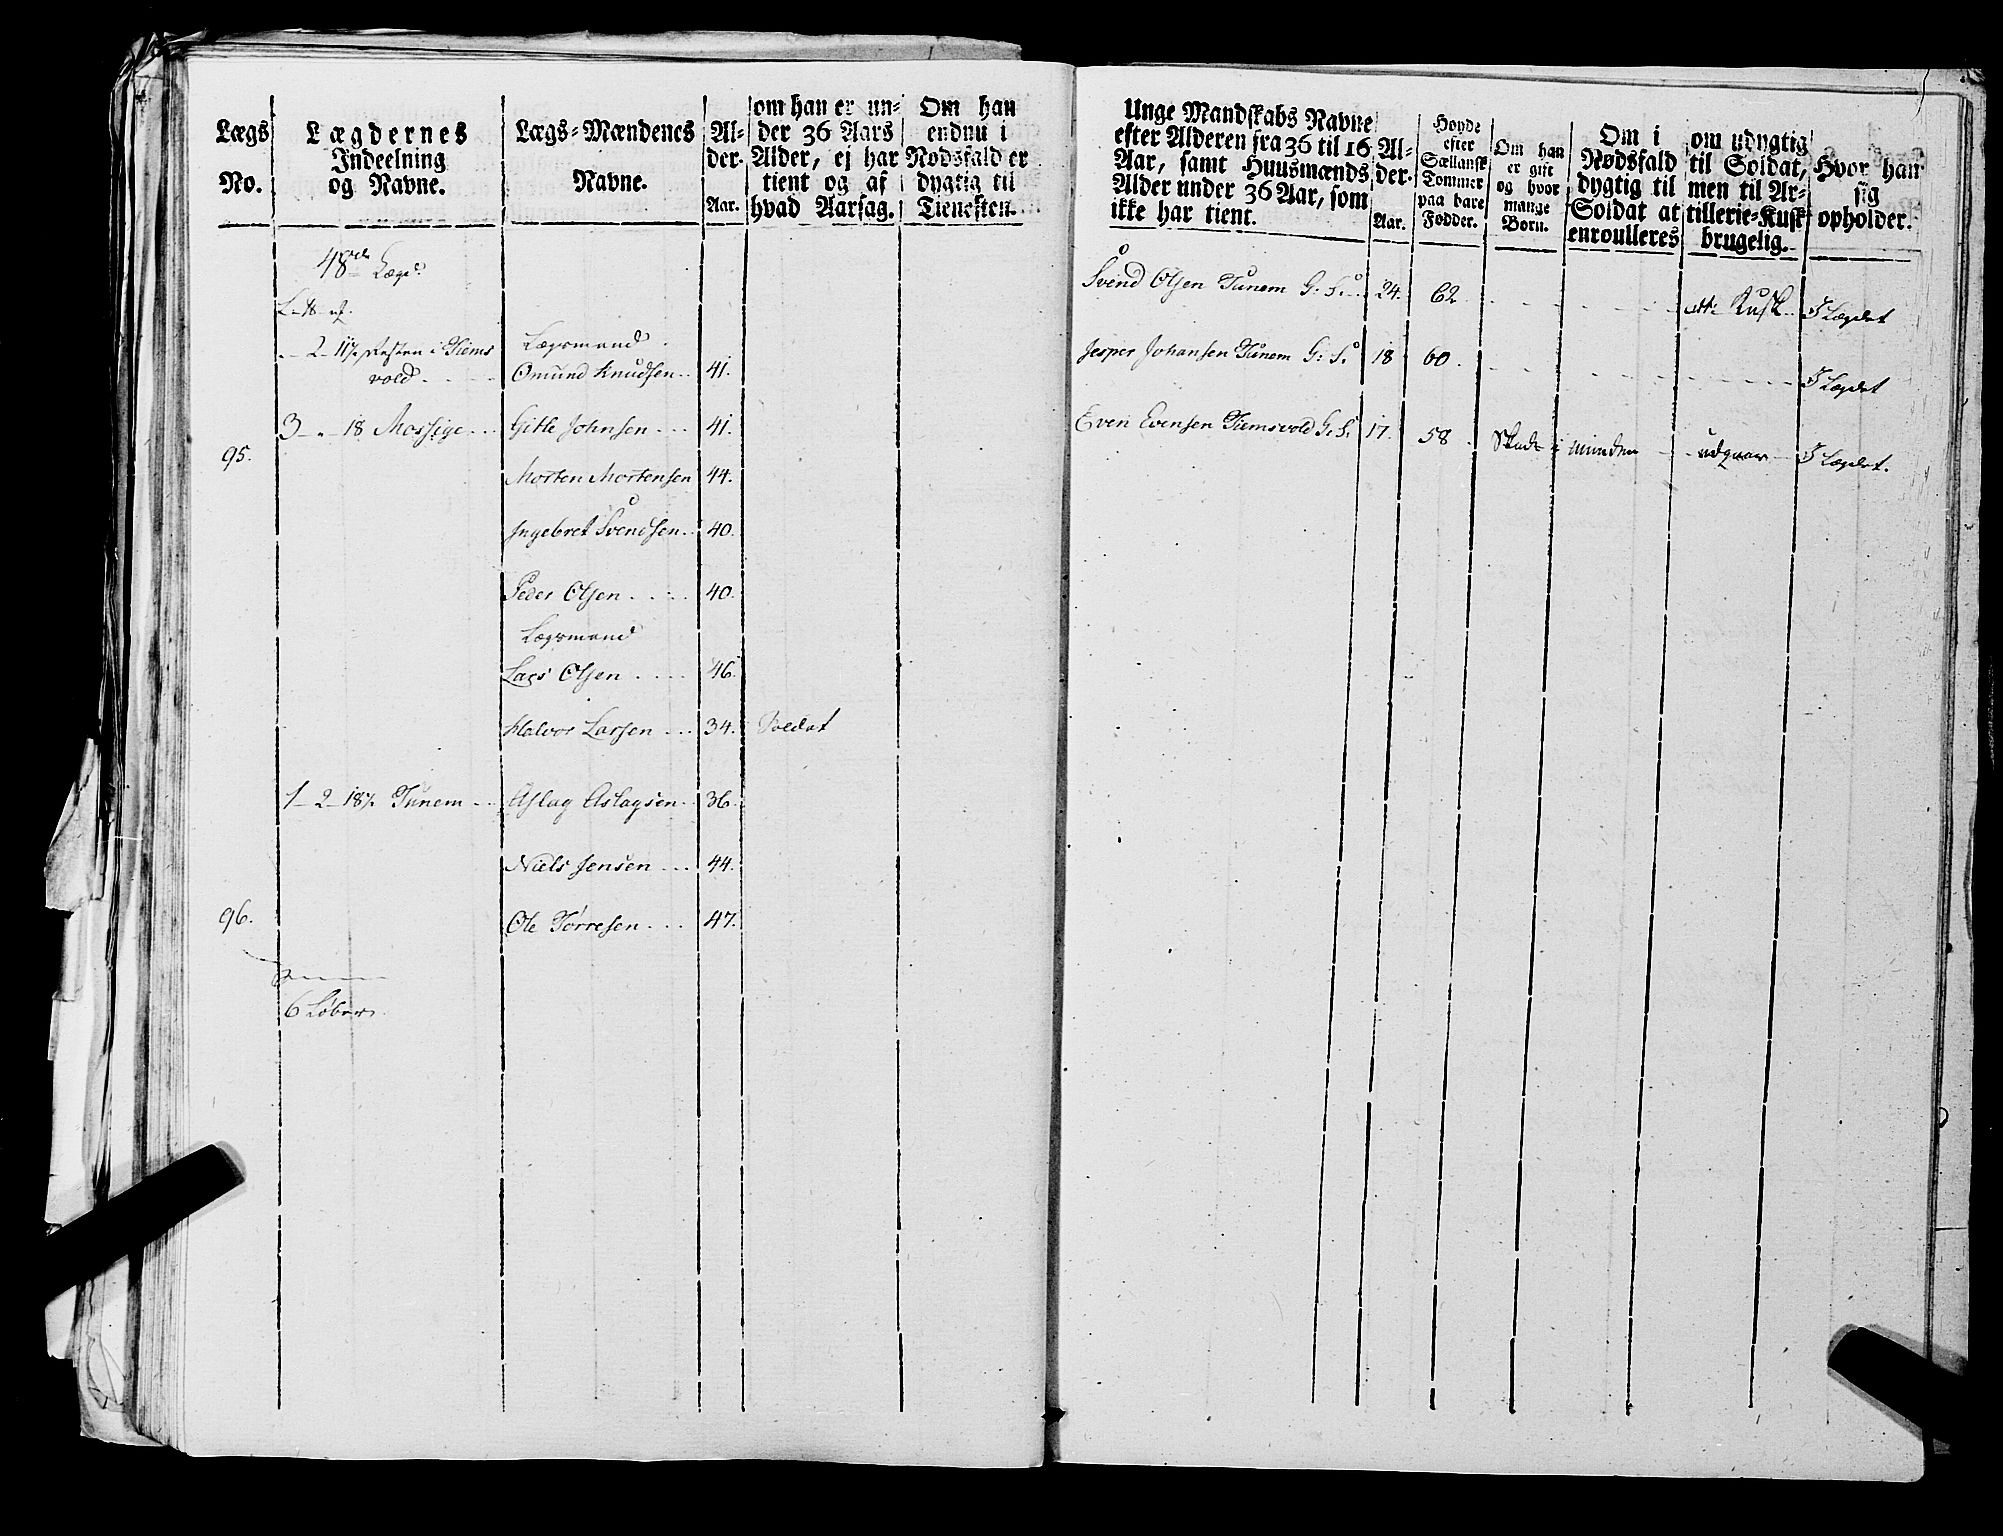 Lægs
No.
Lægdernes
Indeelning
og Navne.
Lægs-Mændenes
Navne.
Al-
der.
Aar.
om han er un-
der 36 Aars
Alder, ej har
tient og af
hvad Aarsag.
Om han
endnu i
Nødsfald er
dygtig til
Tienesten.
48de Lægd
2 - 11½ Resten i Tiems
vold
Lægsmand
Omund Knudsen 41.
95.
3 - " - 18 Mossige Gitle Johnsen 41.
Morten Mortensen 44.
Ingebret Svendsen 40.
Peder Olsen 40.
Lægsmand
Lars Olsen 46.
Halvor Larsen 34. Soldat
1 - 2 - 18½ Tunem Aslag Aslagsen 36.
Niels Jensen 44.
96.
Ole Tørresen 47.
6 Løber
Unge Mandskabs Navne
efter Alderen fra 36 til 16
Aar, samt Huusmænds
Alder under 36 Aar, som
ikke har tient.
Al-
der.
Aar.
Høyde
efter
Sællansk
Tommer
paa bare
Fødder.
Om han
er gift
og hvor
mange
Børn.
Om i
Nødsfald
dygtig til
Soldat at
enroulleres
om udygtig
til Soldat,
men til Ar-
tillerie-Kusk
brugelig.
Hvor han
sig
opholder.
Svend Olsen Tunem G: S: 24. 62 Kusk I Lægdet
Jesper Johansen Tunem G: S: 18 60. I Lægdet
Even Evensen Tiemsvold G: S: 17. 58 Skade i munden udgaar I Lægdet.